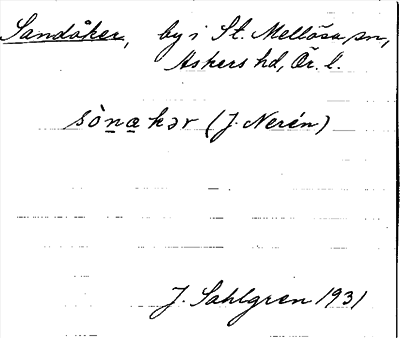 Sandåker, by i St. Mellösa sn,
Askers hd, Ör. l.
sònakər (J. Nerén)
J. Sahlgren 1931